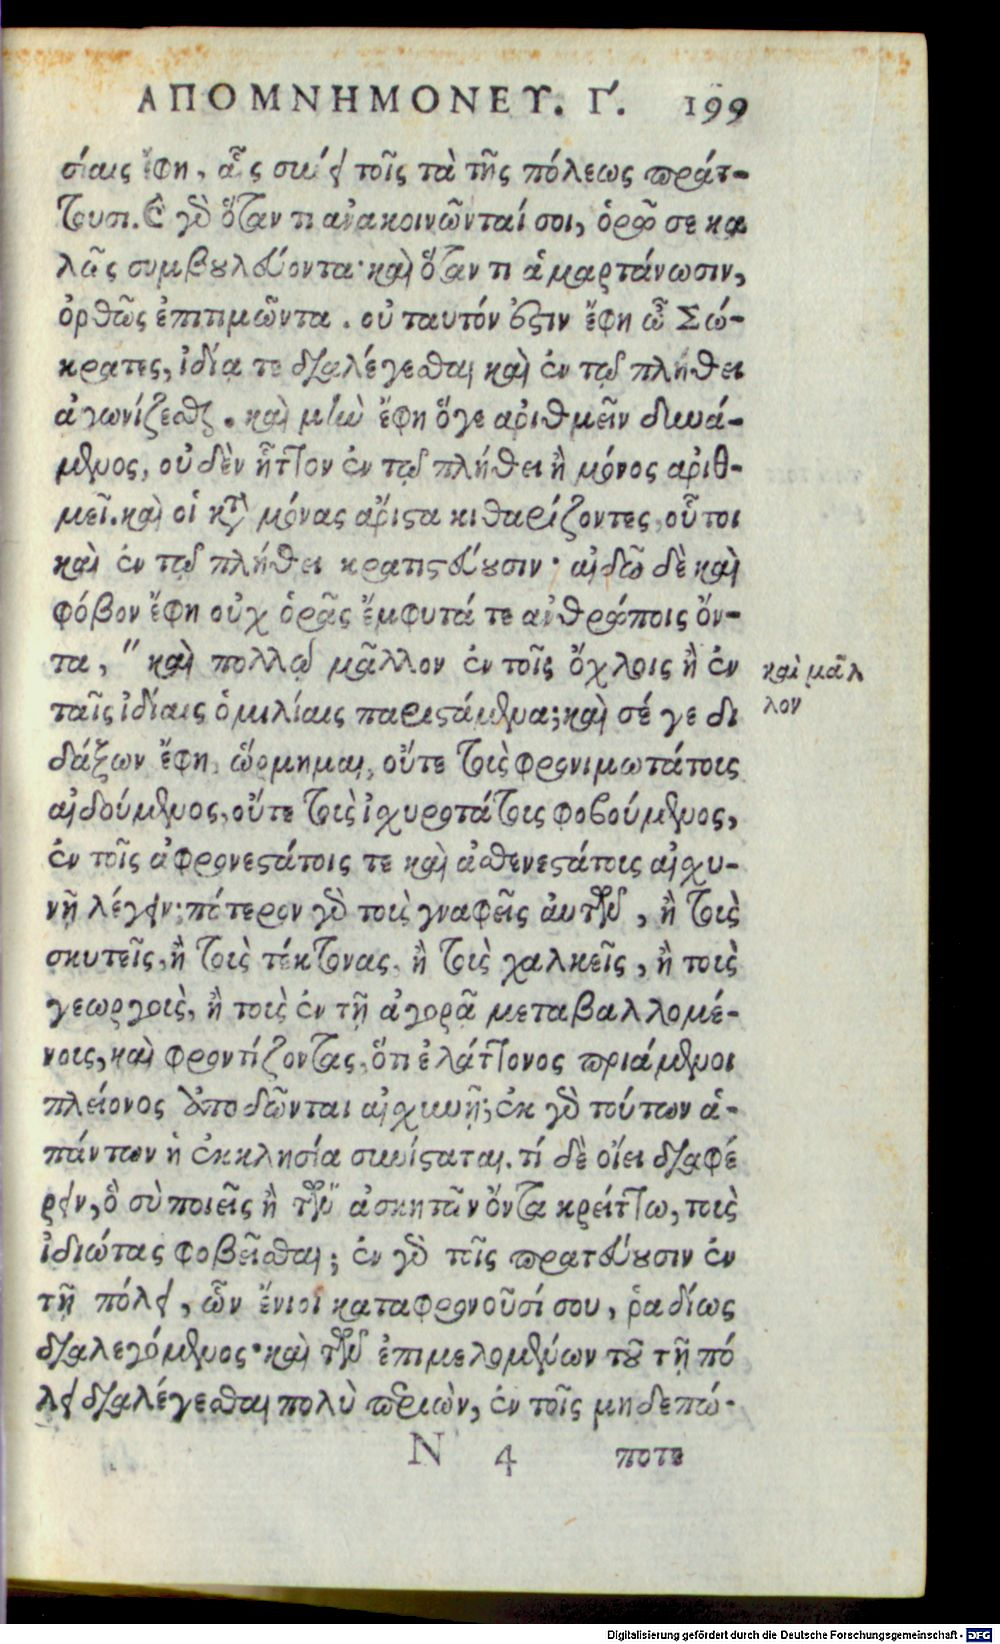 ΑΠΟΜΝΗΜΟΝΕΥ. Γ. 199
σίαις ἔφη, αἷς σύνει τοῖς τὰ τῆς πόλεως πράτ-
τουσι. καὶ γὰρ ὅταν τι ἀνακοινῶνταί σοι, ὁρῶ σε κα
λῶς συμβουλεύοντα· καὶ ὅταν τι ἁμαρτάνωσιν,
ὀρθῶς ἐπιτιμῶντα. οὐ ταυτόν ἐστιν ἔφη ὦ Σώ-
κρατες, ἰδία τε διαλέγεσθαι καὶ ἐν τῷ πλήθει
ἀγωνίζεσθαι. καὶ μὴν ἔφη ὅγε ἀριθμεῖν δυνά-
μενος, οὐδὲν ἧττον ἐν τῷ πλήθει ἢ μόνος ἀριθ-
μεῖ. καὶ οἱ κατὰ μόνας ἄριστα κιθαρίζοντες, οὗτοι
καὶ ἐν τῷ πλήθει κρατιστεύουσιν· αἰδῶ δὲ καὶ
φόβον ἔφη οὐχ ὁρᾷς ἔμφυτά τε ἀνθρώποις ὄν-
τα, " καὶ πολλῷ μᾶλλον ἐν τοῖς ὄχλοις ἢ ἐν
καὶ μᾶλ
λον
ταῖς ἰδίαις ὁμιλίαις παριστάμενα; καὶ σέ γε δι
δάξων ἔφη, ὥρμημαι, οὔτε τοὺς φρονιμωτάτους
αἰδούμενος, οὔτε τοὺς ἰσχυροτάτους φοβούμενος,
ἐν τοῖς ἀφρονεστάτοις τε καὶ ἀσθενεστάτοις αἰσχύ-
νῃ λέγειν· πότερον γὰρ τοὺς γναφεῖς αὐτῶν, ἢ τοὺς
σκυτεῖς, ἢ τοὺς τέκτονας, ἢ τοὺς χαλκεῖς, ἢ τοὺς
γεωργοὺς, ἢ τοὺς ἐν τῇ ἀγορᾷ μεταβαλλομέ-
νους, καὶ φροντίζοντας, ὅτι ἐλάττονος πριάμενοι
πλείονος ἀποδῶνται αἰσχύνῃ; ἐκ γὰρ τούτων ἁ-
πάντων ἡ ἐκκλησία συνίσταται. τί δὲ οἴει διαφέ
ρειν, ὃ σὺ ποιεῖς ἢ τῶν ἀσκητῶν ὄντα κρείττω, τοὺς
ἰδιώτας φοβεῖσθαι; ἐν γὰρ τοῖς πρατεύουσιν ἐν
τῇ πόλει, ὧν ἔνιοι καταφρονοῦσί σου, ῥαδίως
διαλεγόμενος· καὶ τῶν ἐπιμελομένων τοῦ τῇ πό
λει διαλέγεσθαι πολὺ περιὼν, ἐν τοῖς μηδεπώ-
N 4 ποτε
Digitalisierung gefördert durch die Deutsche Forschungsgemeinschaft - DFG